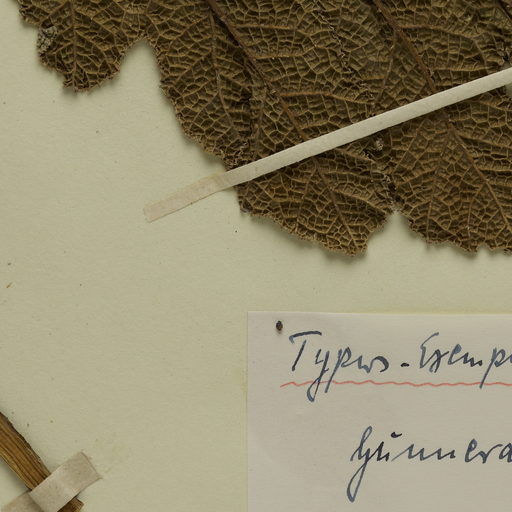 Typus-Exemp
Gunnera